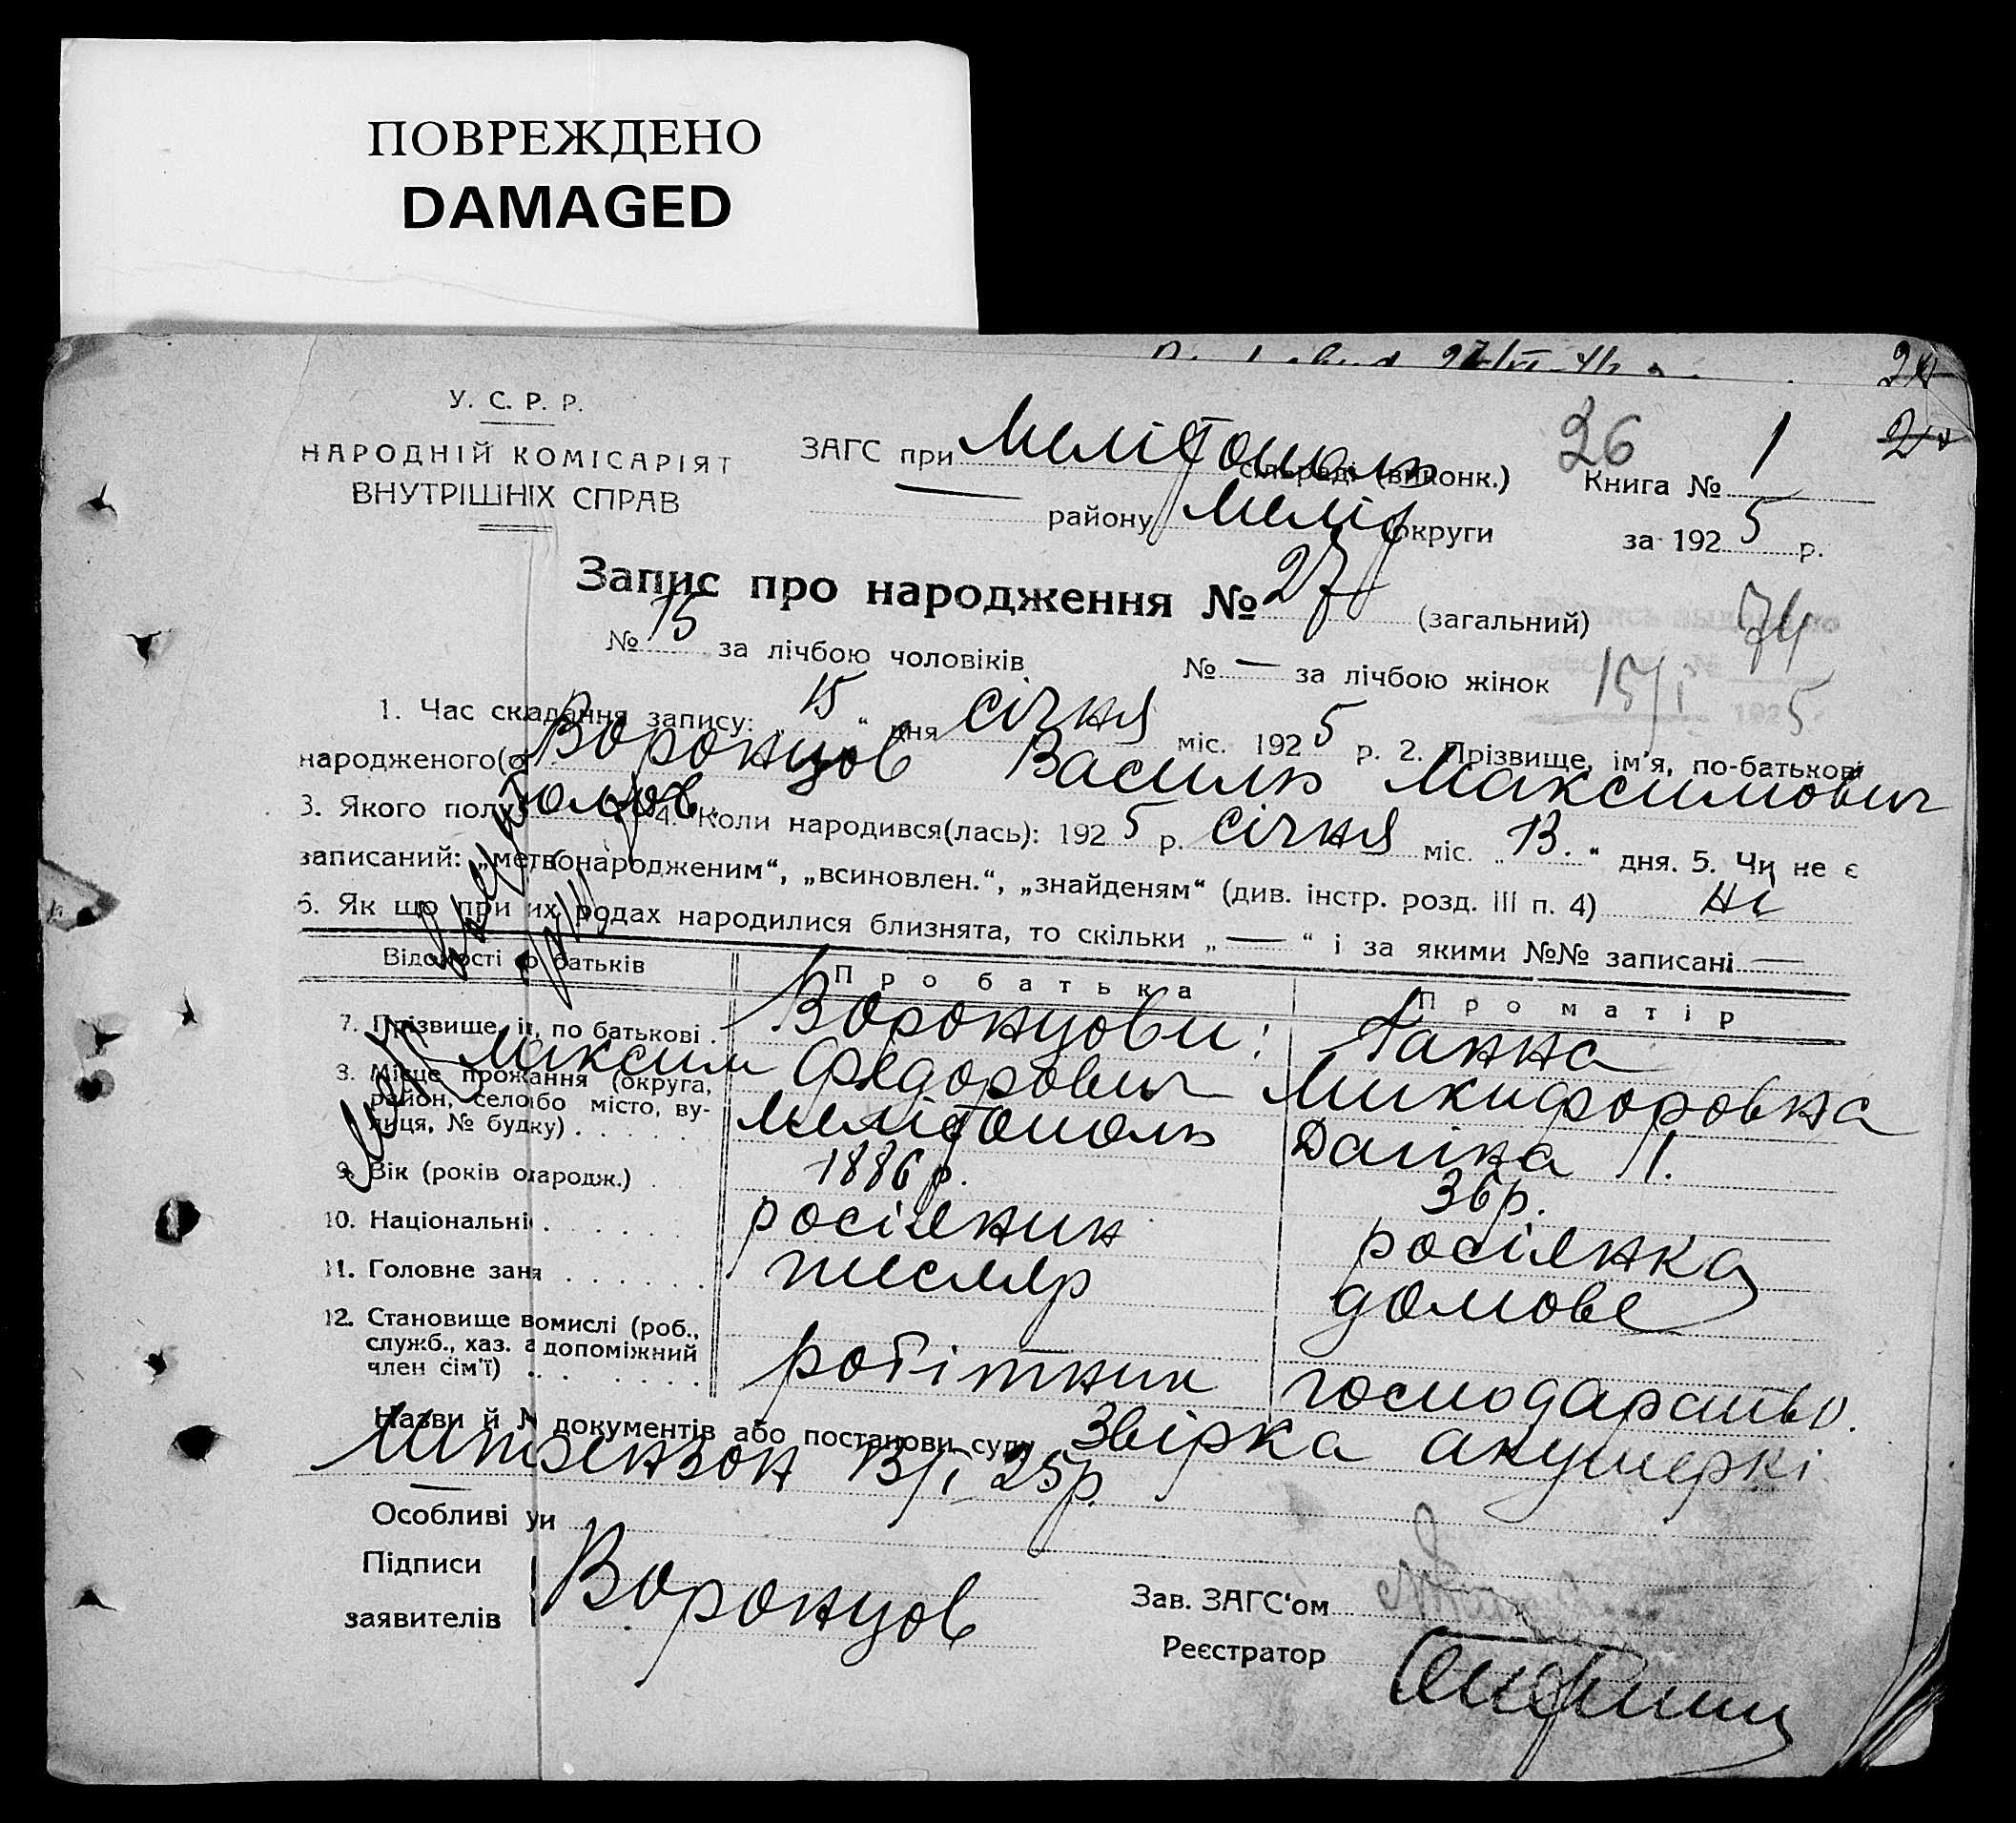 ПОВРЕЖДЕНО
DAMAGED
24
У. С. Р. Р.
НАРОДНІЙ КОМІСАРІЯТ
ВНУТРІШНІХ СПРАВ
ЗАГС при Мелітополь (виконк.) 26 Книга № 1
— району Меліт округи за 1925 р.
Запис про народження № 27 (загальний) 74
№ 15 за лічбою чоловіків № — за лічбою жінок 15/I 1925
1. Час складання запису: „15“ дня січня міс. 1925 р. 2. Прізвище, ім'я, по-батькові
народженого(ої) Воронцов Василь Максимович
3. Якого полу чолов. 4. Коли народився(лась): 1925 р. січня міс. „13.“ дня. 5. Чи не є
записаний: „метвонародженим“, „всиновлен.“, „знайденям“ (див. інстр. розд. III п. 4) ні
6. Як що при их родах народилися близнята, то скільки „—“ і за якими №№ записані —
Відомості о батьків Про батька Про матір
7. Прізвище, і, по батькові . Воронцови: Ганна
Максим Федорович Микифоровна
8. Місце прожання (округа, район, село бо місто, вулиця, № будку) . . . . Мелітополь Даліка 11.
9. Вік (років ођародж.) . 1886 р. 36 р.
10. Національні . . . . . росіянин росіянка
11. Головне заня . . . . . . тесляр домове
12. Становище вомислі (роб., служб., хаз. а допоміжний член сім'ї) . . . . . . робітник господарство.
Назви й № документів або постанови суду Звірка акушеркі
13/I 25р.
Особливі уи —
Підписи
заявителів Воронцов
Зав. ЗАГС'ом
Реєстратор